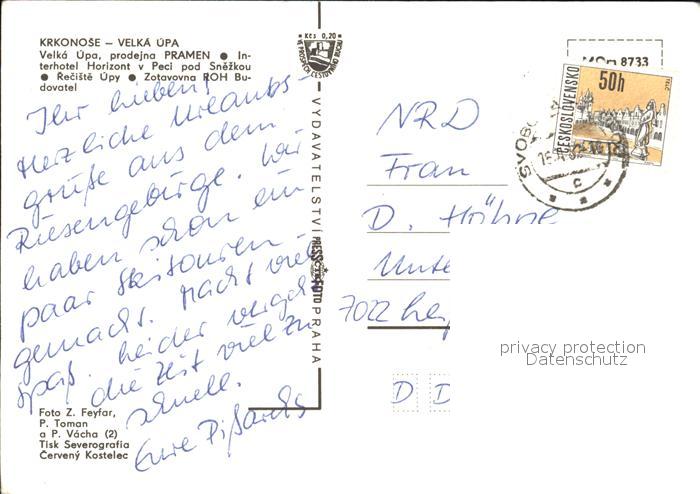 KRKONOŠE – VELKÁ ÚPA
Velká Úpa, prodejna PRAMEN ● In-
terhotel Horizont v Peci pod Sněžkou
● Řečiště Úpy ● Zotavovna ROH Bu-
dovatel
Ihr Lieben!
Herzliche Urlaubs-
grüße aus dem
Riesengebirge. Wir
haben schon ein
paar Skitouren
gemacht. Macht viel
Spaß. Leider vergeht
die Zeit viel zu
schnell.
Eure
Foto Z. Feyfar,
P. Toman
a P. Vácha (2)
Tisk Severografia
Červený Kostelec
Kčs 0,20
VYDAVATELSTVÍ PRESSFOTO PRAHA
8733
50h
ČESKOSLOVENSKO
TELČ
SVOBO
C
NRD
Frau
D. Höhne
Unte
7022 Leip
D D
privacy protection
Datenschutz